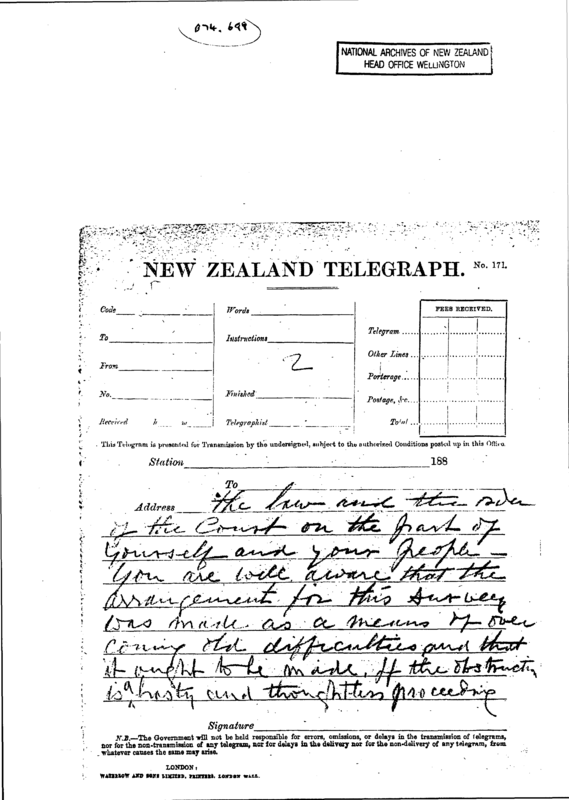 874.699
NATIONAL ARCHIVES OF NEW ZEALAND
HEAD OFFICE WELLINGTON
NEW ZEALAND TELEGRAPH. No. 171.
Code
Words
FEES RECEIVED.
Telegram
To
Instructions
Other Lines
From
2
Porterage
No.
Finished
Postage, &c.
Received h m
Telegraphist
Total
This Telegram is presented for Transmission by the undersigned, subject to the authorized Conditions posted up in this Office.
Station 188
To
Address the law and the order
of the Court on the part of
yourself and your people —
You are well aware that the
arrangement for this survey
was made as a means of over
coming old difficulties and that
it ought to be made. If the obstructn
is a hasty and thoughtless proceeding
Signature
N.B.—The Government will not be held responsible for errors, omissions, or delays in the transmission of telegrams,
nor for the non-transmission of any telegram, nor for delays in the delivery nor for the non-delivery of any telegram, from
whatever causes the same may arise.
LONDON:
WATERLOW AND SONS LIMITED, PRINTERS, LONDON WALL.